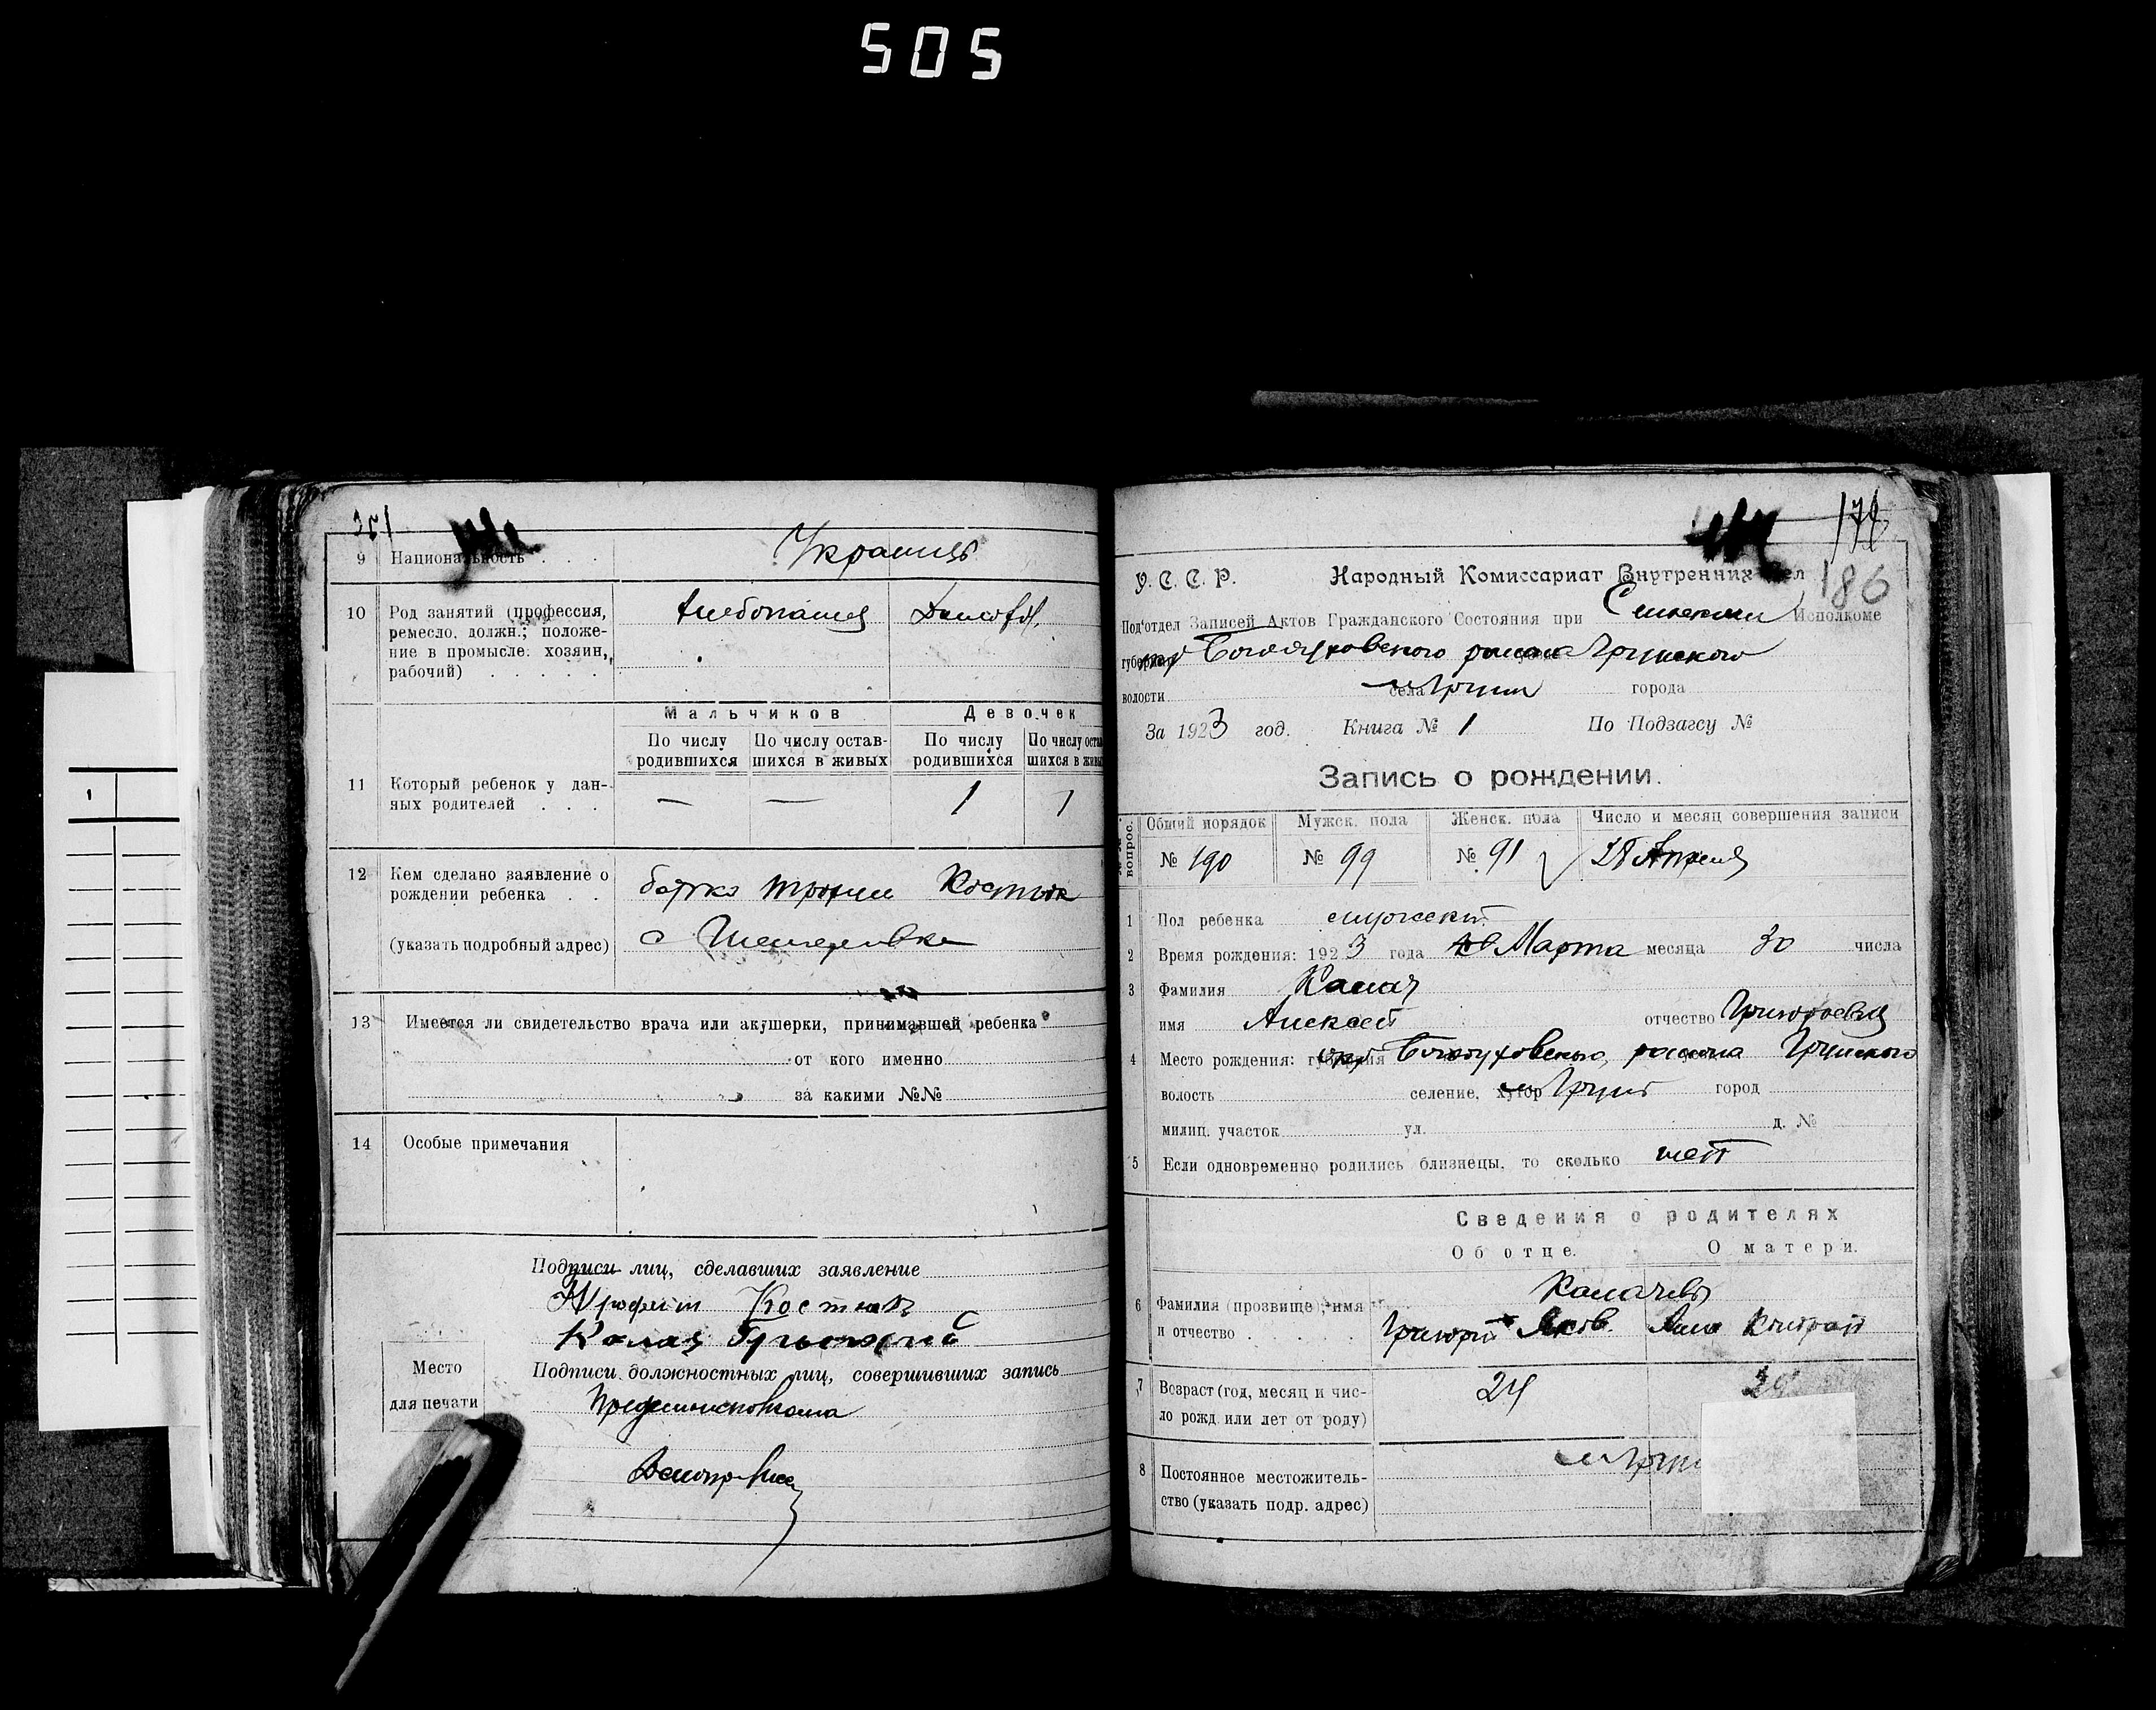 505
351
9 Национальность . . . Украинцы
10 Род занятий (профессия, ремесло, должн.; положение в промысле: хозяин, рабочий) . . . . .
Хлебопашец
Мальчиков Девочек
По числу родившихся По числу оставшихся в живых По числу родившихся По числу оставшихся в живых
11 Который ребенок у данных родителей . . . — — 1 1
12 Кем сделано заявление о рождении ребенка . . батько Трофим Костюк
(указать подробный адрес) с
13 Имеется ли свидетельство врача или акушерки, принимавшей ребенка
от кого именно
за какими №№
14 Особые примечания
Подписи лиц, сделавших заявление
Трофим Костюк
Калач Григорий
Место для печати
Подписи должностных лиц, совершивших запись
178
186
У. С. С. Р. Народный Комиссариат Внутренних Дел
Под'отдел Записей Актов Гражданского Состояния при Исполкоме
губернии окр Богодуховского района Грунского
волости села м Груни города
За 1923 год. Книга № 1 По Подзагсу №
Запись о рождении.
вопрос. Общий порядок Мужск. пола Женск. пола Число и месяц совершения записи
№ 190 № 99 № 91 Апреля
1 Пол ребенка мужеск
2 Время рождения: 1923 года Марта месяца 30 числа
3 Фамилия Калач
имя Алексей отчество Григорьевич
4 Место рождения: губерния окр Богодуховского, района Грунского
волость селение, хутор м Грунь город
милиц. участок ул. д. №
5 Если одновременно родились близнецы, то сколько нет
Сведения о родителях
Об отце. О матери.
6 Фамилия (прозвище), имя и отчество . . . . Калачевы
Григорий Яков. Анна Кондрат
7 Возраст (год, месяц и число рожд. или лет от роду) 24
8 Постоянное местожительство (указать подр. адрес)
м Грунь